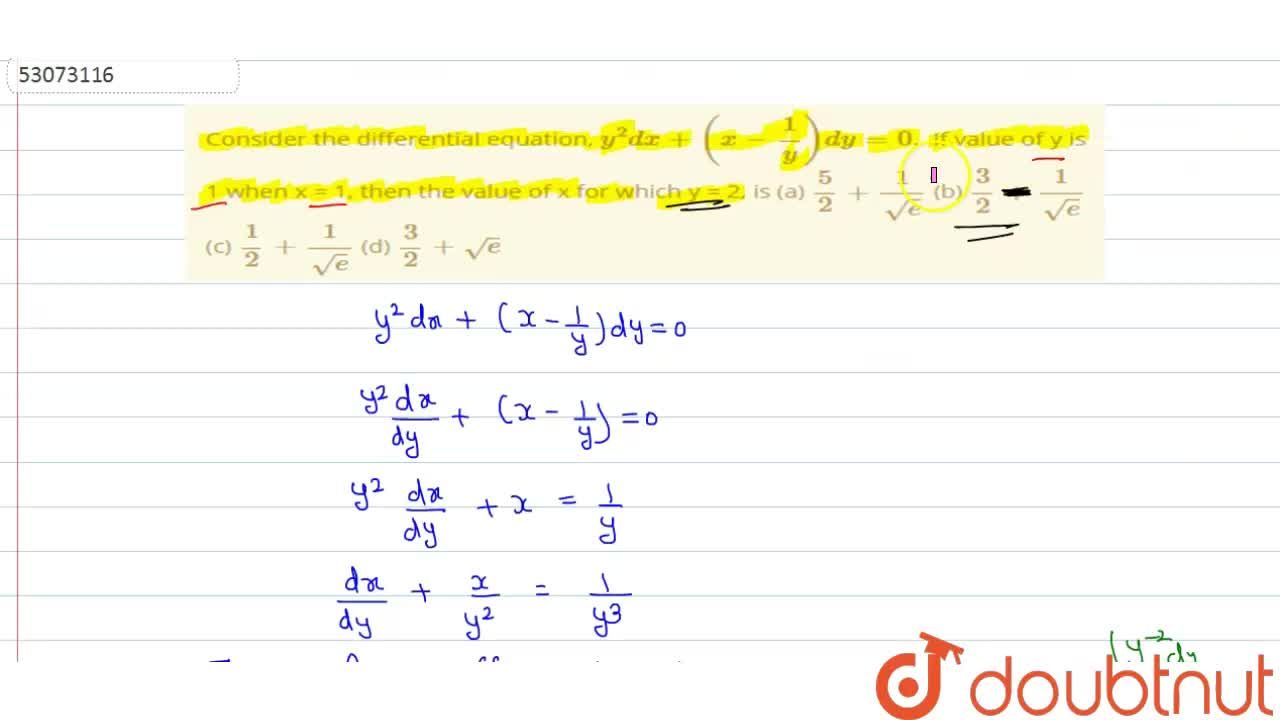 53073116
Consider the differential equation, y²dx + (x − 1/y) dy = 0. If value of y is
1 when x = 1, then the value of x for which y = 2, is (a) 5/2 + 1/√e (b) 3/2 − 1/√e
(c) 1/2 + 1/√e (d) 3/2 + √e
y² dx + (x − 1/y) dy = 0
y² dx/dy + (x − 1/y) = 0
y² dx/dy + x = 1/y
dx/dy + x/y² = 1/y³
∫ y⁻² dy
doubtnut